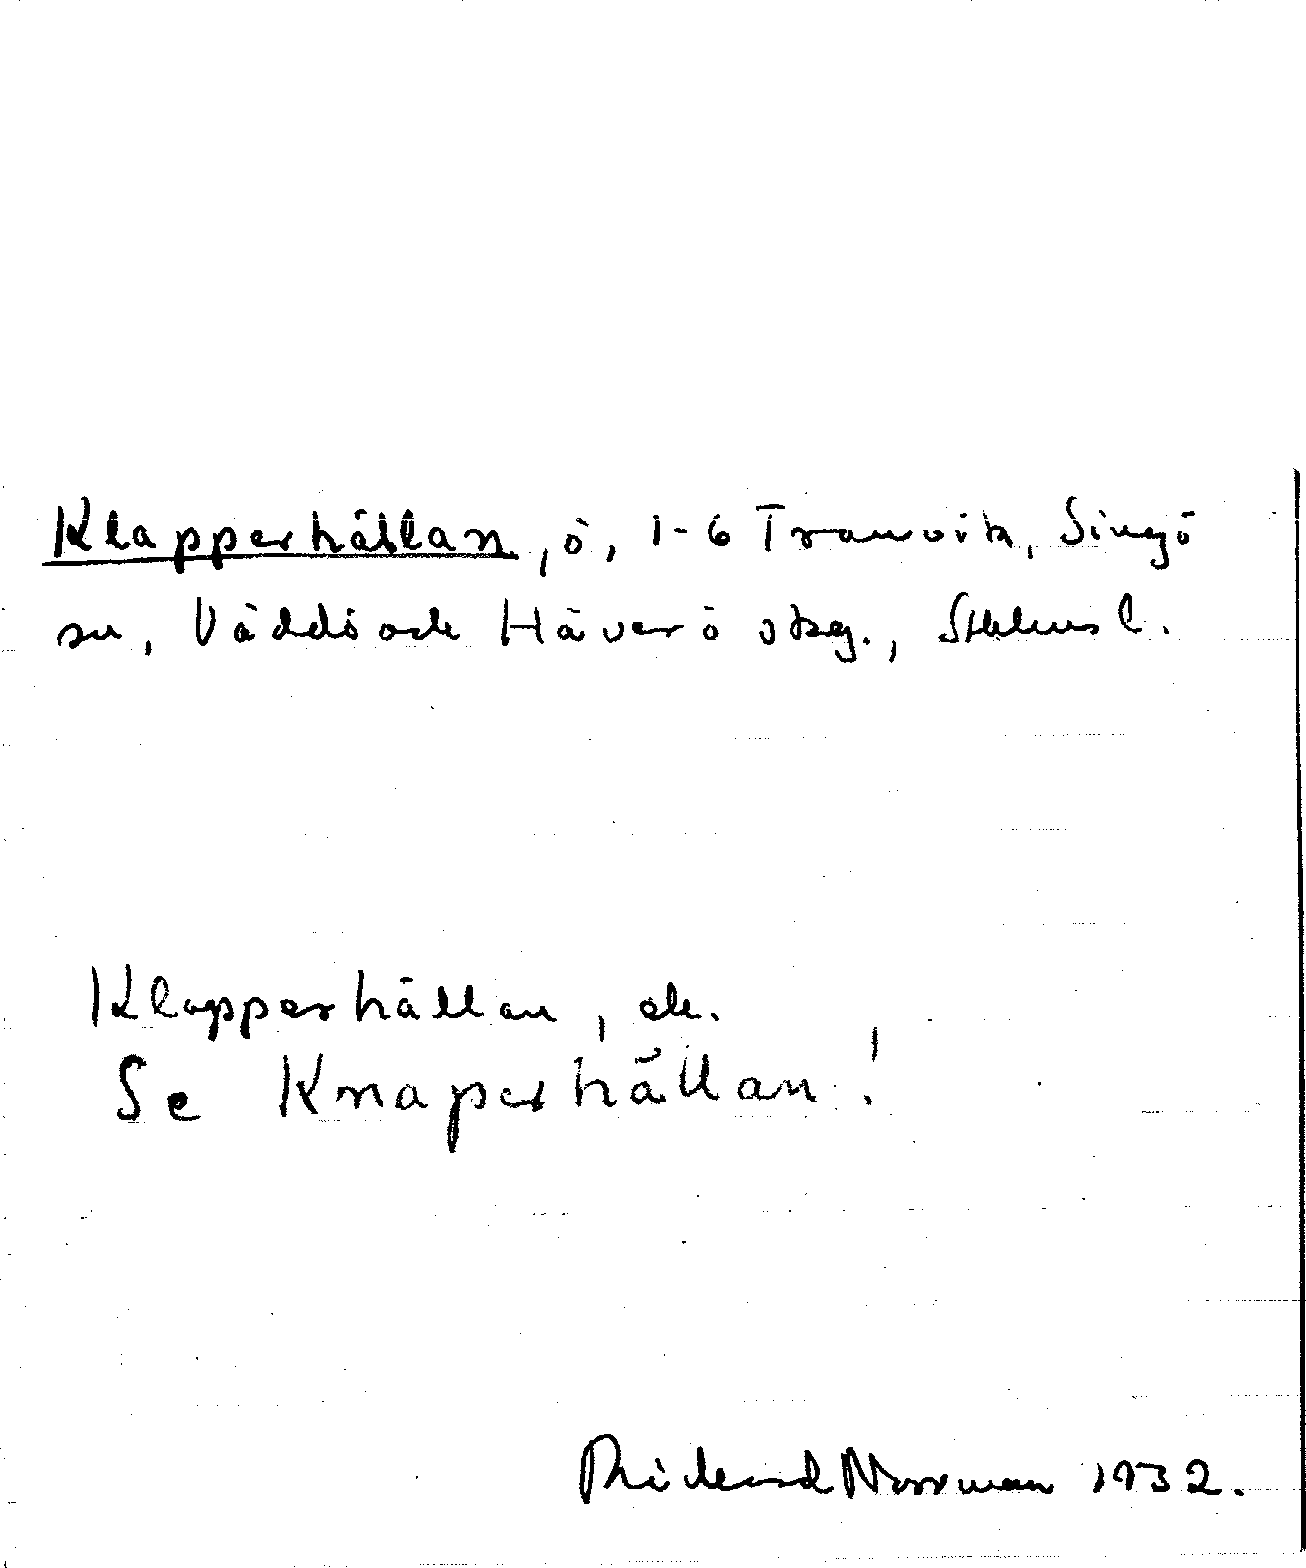 Klapperhällan, ö, 1-6 Tranvik, Singö
sn, Väddö och Häverö skg., Sthlms l.
Klapperhällan, ök.
Se Knaperhällan!
Rickard Norrman 1932.